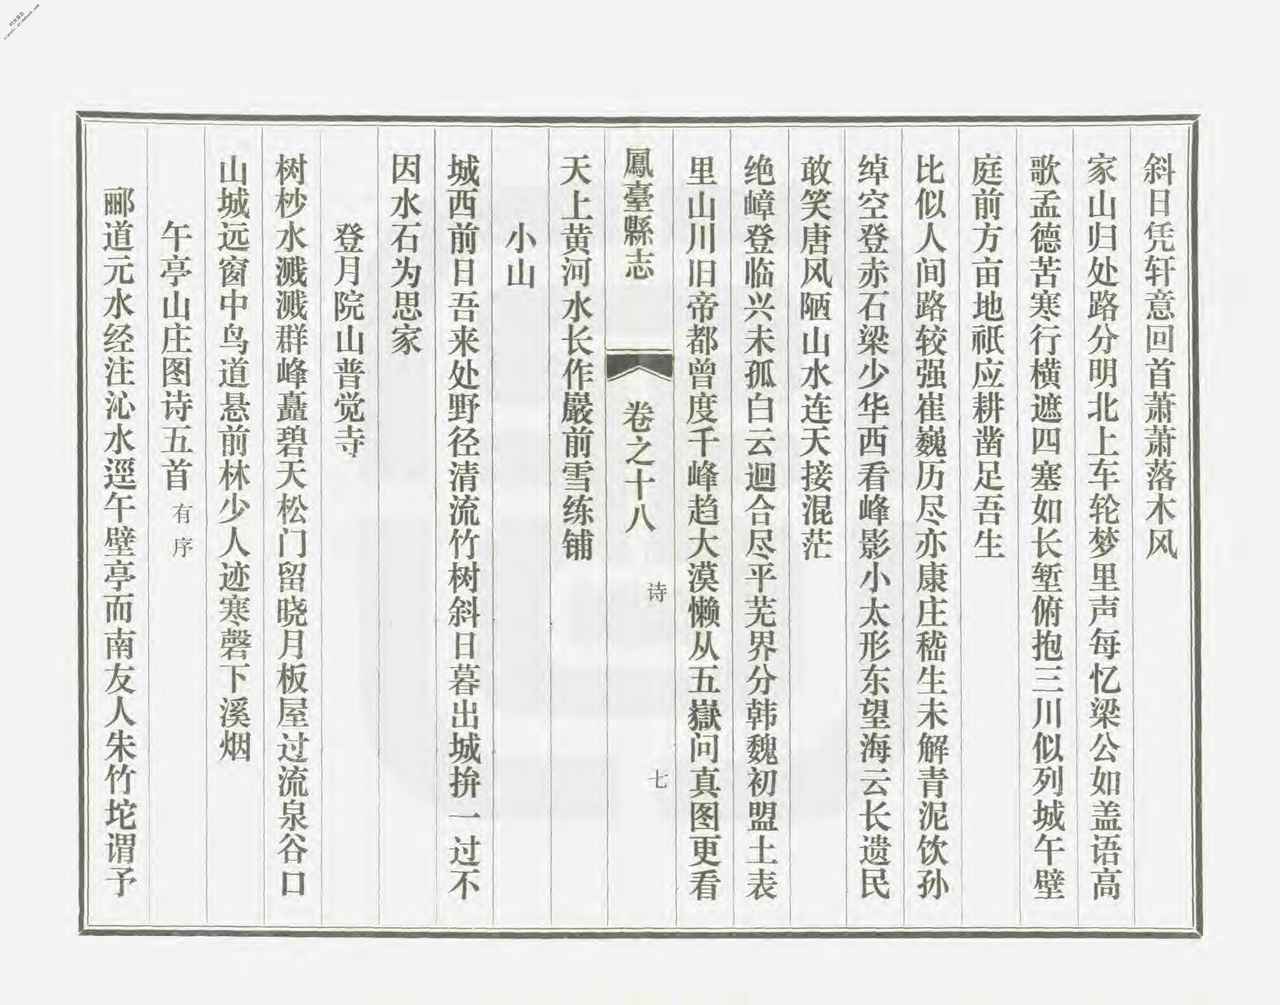 斜日凭轩意回首萧萧落木风
家山归处路分明北上车轮梦里声每忆梁公如盖语高
歌孟德苦寒行横遮四塞如长堑俯抱三川似列城午壁
庭前方亩地祇应耕凿足吾生
比似人间路较强崔巍历尽亦康庄嵇生未解青泥饮孙
绰空登赤石梁少华西看峰影小太形东望海云长遗民
敢笑唐风陋山水连天接混茫
绝嶂登临兴未孤白云迴合尽平芜界分韩魏初盟土表
里山川旧帝都曾度千峰趋大漠懒从五嶽问真图更看
鳳臺縣志 卷之十八 诗 七
天上黄河水长作巖前雪练铺
小山
城西前日吾来处野径清流竹树斜日暮出城拚一过不
因水石为思家
登月院山普觉寺
树杪水溅溅群峰矗碧天松门留晓月板屋过流泉谷口
山城远窗中鸟道悬前林少人迹寒磬下溪烟
午亭山庄图诗五首 有序
郦道元水经注沁水逕午壁亭而南友人朱竹坨谓予